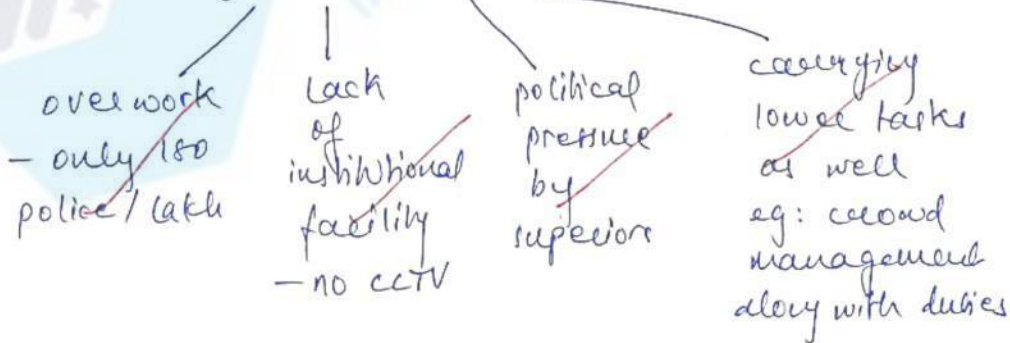 overwork
- only 180
police / lakh
Lack
of
institutional
facility
- no CCTV
political
pressure
by
superiors
carrying
lower tasks
as well
eg: crowd
management
along with duties